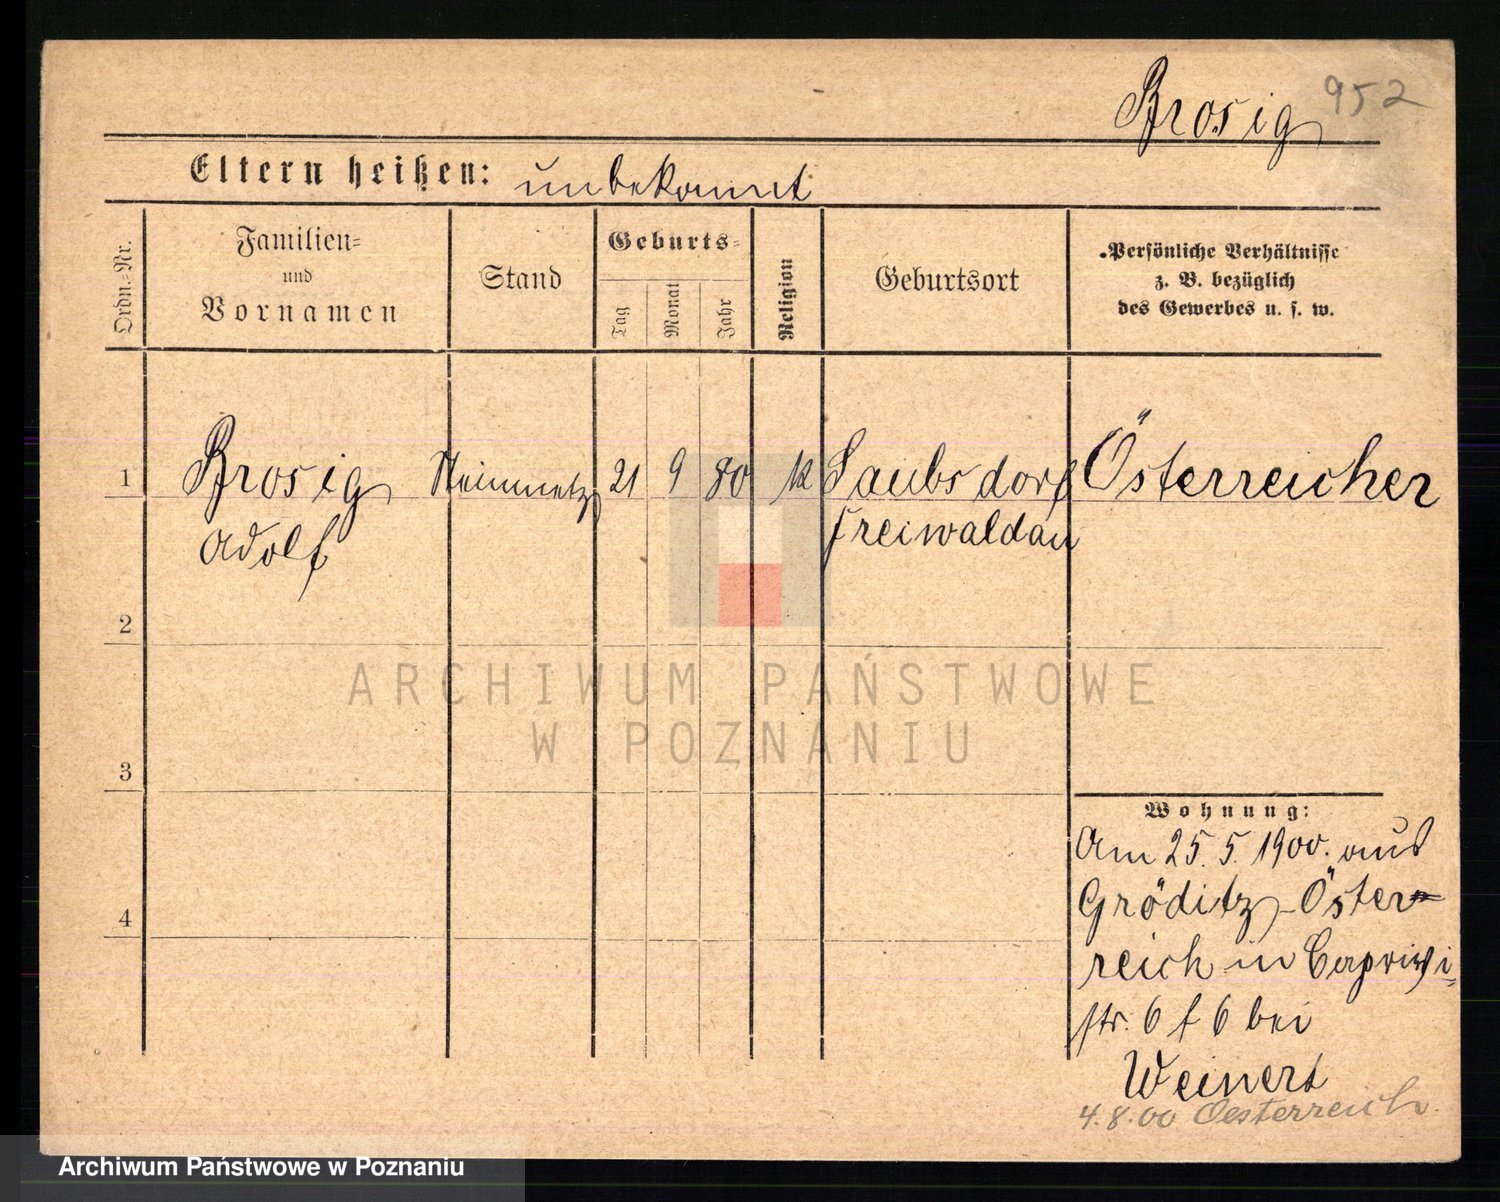 Brosig 952
Eltern heißen: unbekannt
Ordn.-Nr.
Familien-
und
Vornamen
Stand
Geburts-
Tag
Monat
Jahr
Religion
Geburtsort
Persönliche Verhältnisse
z. B. bezüglich
des Gewerbes u. s. w.
1 Brosig Steinmetz 21 9 80 k Saubsdorf Österreicher
Adolf Freiwaldau
2
3
4
Wohnung:
Am 25.5.1900. aus
Gröditz-Öster-
reich in Caprivi-
str. 6 f 6 bei
Weinert
4.8.00 Oesterreich
ARCHIWUM PAŃSTWOWE
W POZNANIU
Archiwum Państwowe w Poznaniu